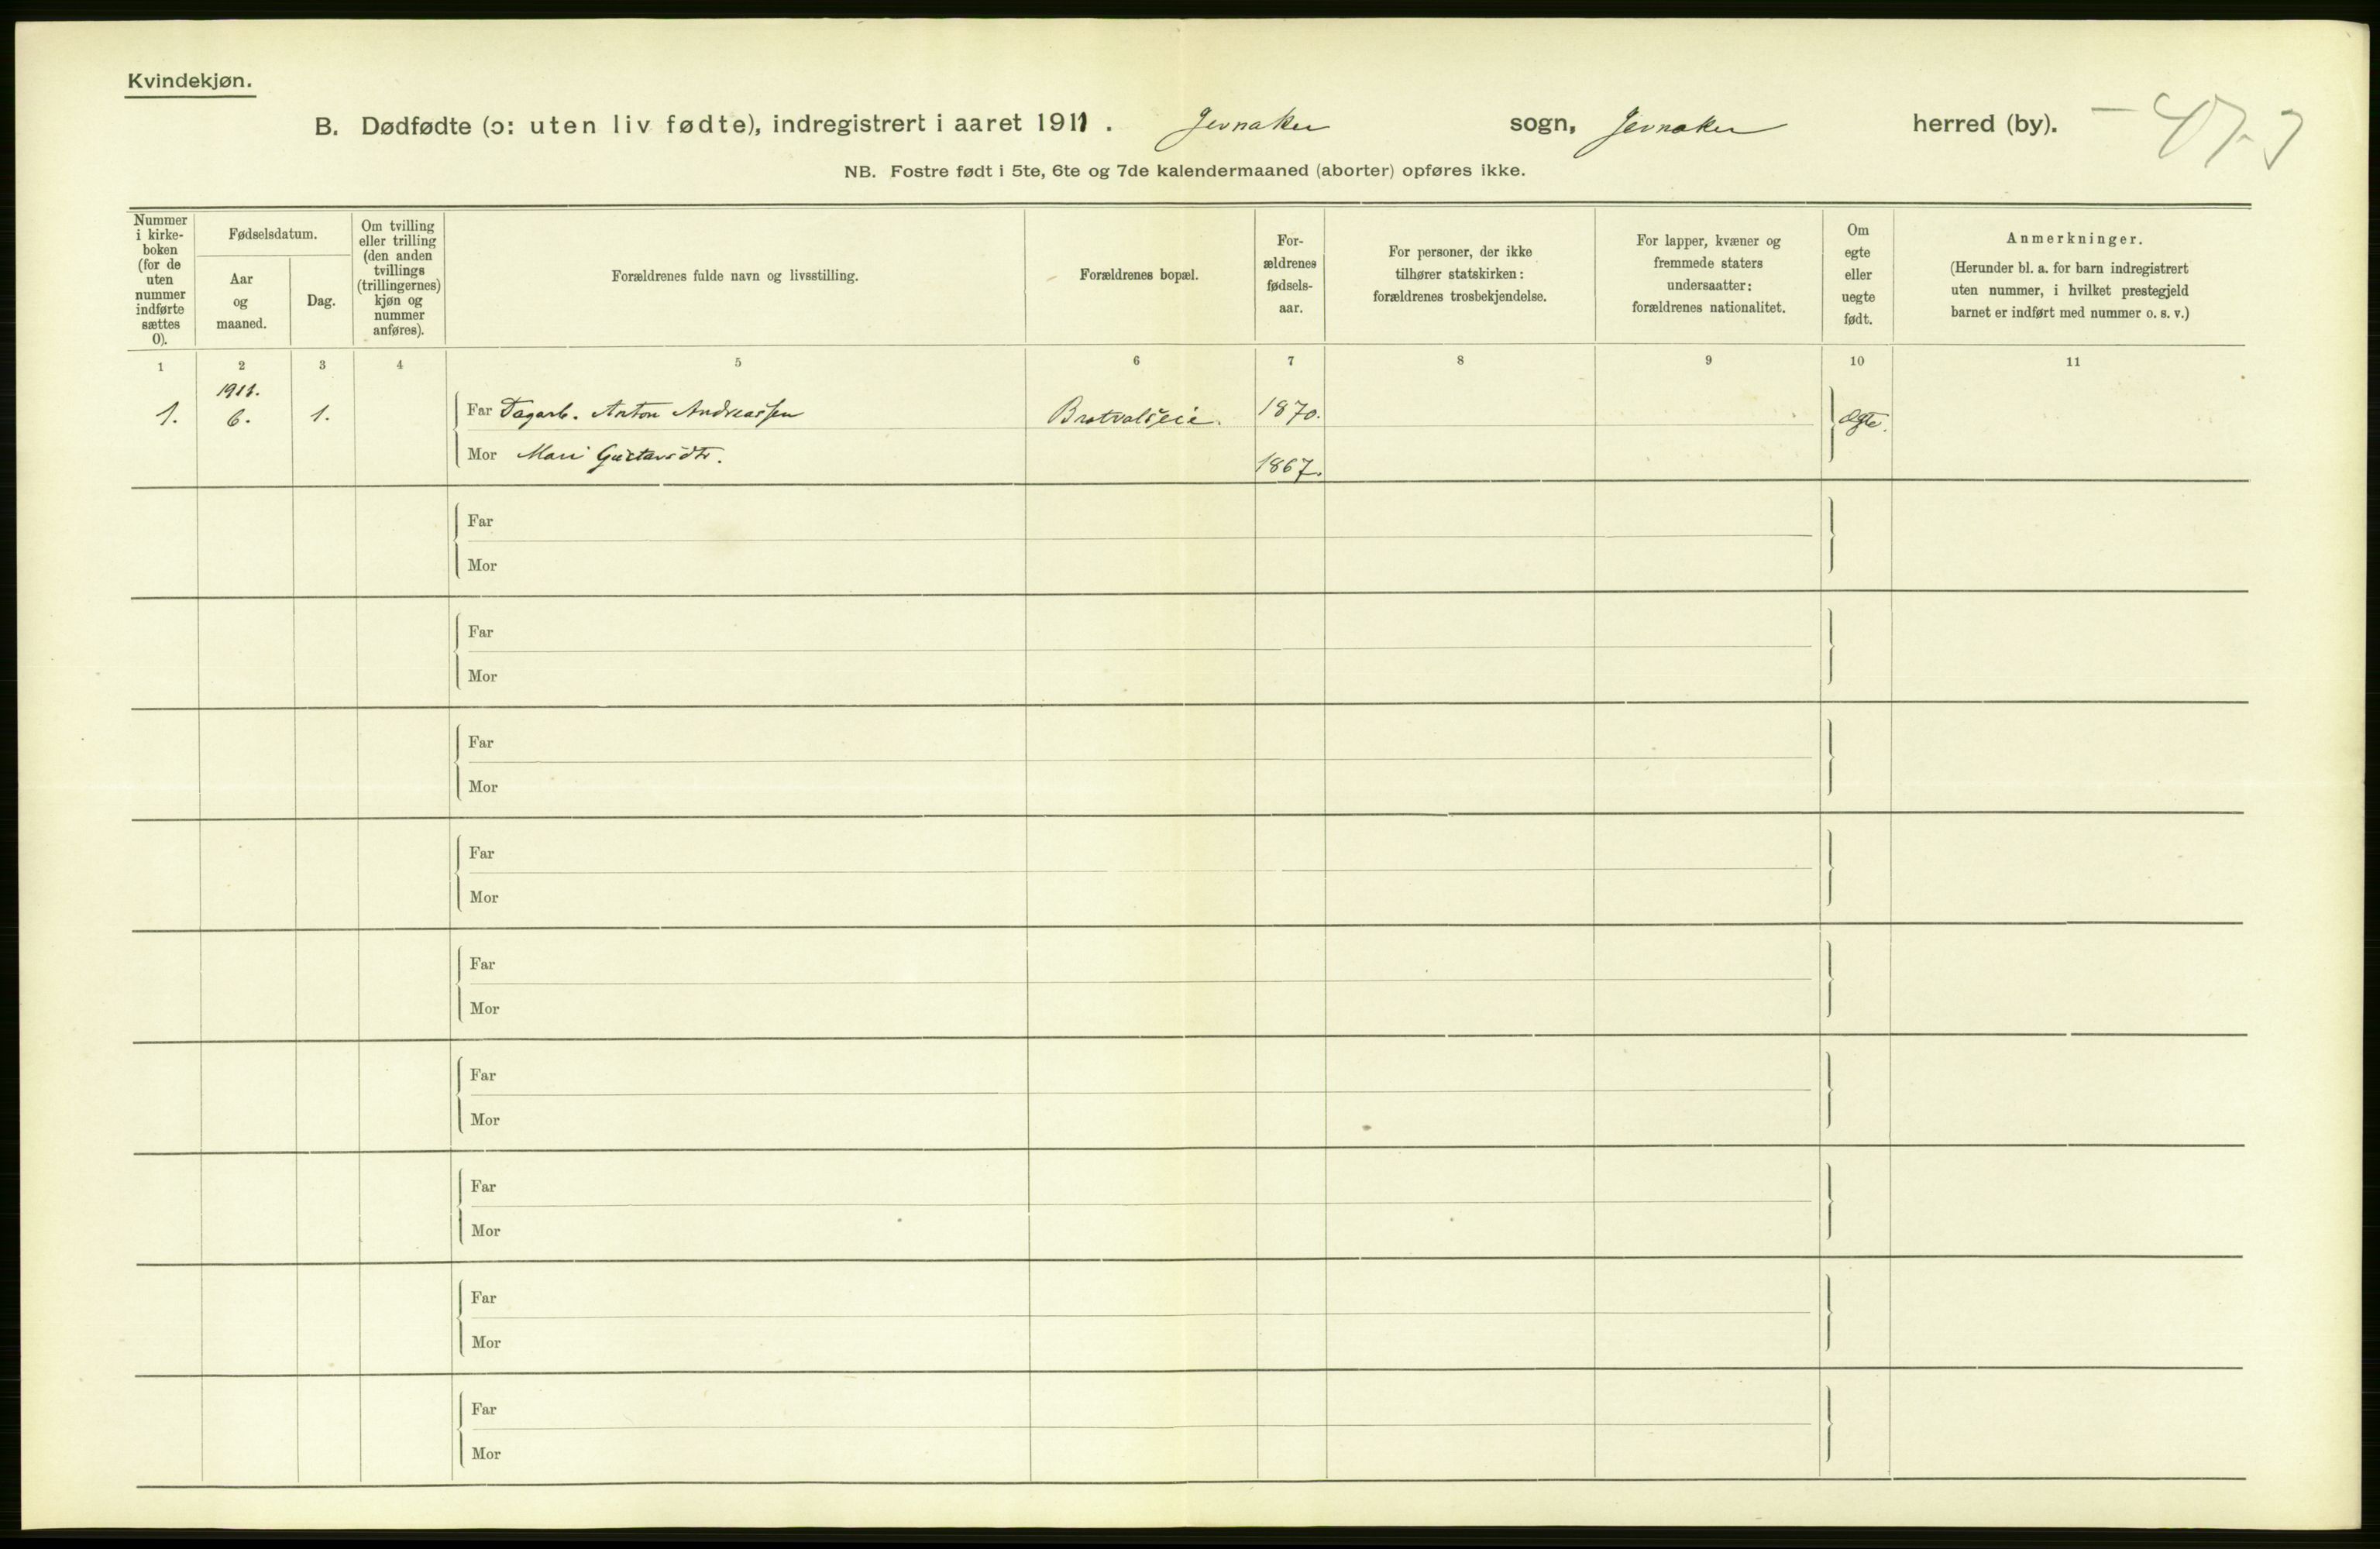 Kvindekjøn.
B. Dødfødte (ɔ: uten liv fødte), indregistrert i aaret 1911. Jevnaker sogn, Jevnaker herred (by).
NB. Fostre født i 5te, 6te og 7de kalendermaaned (aborter) opføres ikke.
Nummer
i kirke-
boken
(for de
uten
nummer
indførte
sættes
0).
Fødselsdatum.
Aar
og
maaned.
Dag.
Om tvilling
eller trilling
(den anden
tvillings
(trillingernes)
kjøn og
nummer
anføres).
Forældrenes fulde navn og livsstilling.
Forældrenes bopæl.
For-
ældrenes
fødsels-
aar.
For personer, der ikke
tilhører statskirken:
forældrenes trosbekjendelse.
For lapper, kvæner og
fremmede staters
undersaatter:
forældrenes nationalitet.
Om
egte
eller
uegte
født.
Anmerkninger.
(Herunder bl. a. for barn indregistrert
uten nummer, i hvilket prestegjeld
barnet er indført med nummer o. s. v.)
1 2 3 4 5 6 7 8 9 10 11
1911.
1. 6. 1. Far Dagarb. Anton Andreassen Brotvalseie. 1870. Ægte.
Mor Mari Gustavsdtr. 1867.
Far
Mor
Far
Mor
Far
Mor
Far
Mor
Far
Mor
Far
Mor
Far
Mor
Far
Mor
Far
Mor